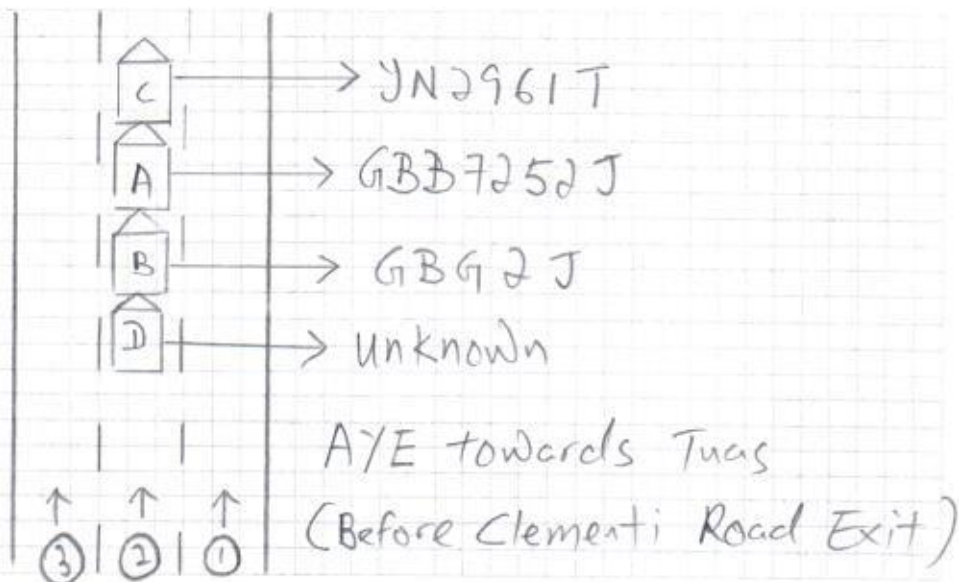 C → YN2961T
A → GBB7252J
B → GBG2J
D → unknown
AYE towards Tuas
(Before Clementi Road Exit)
3 2 1